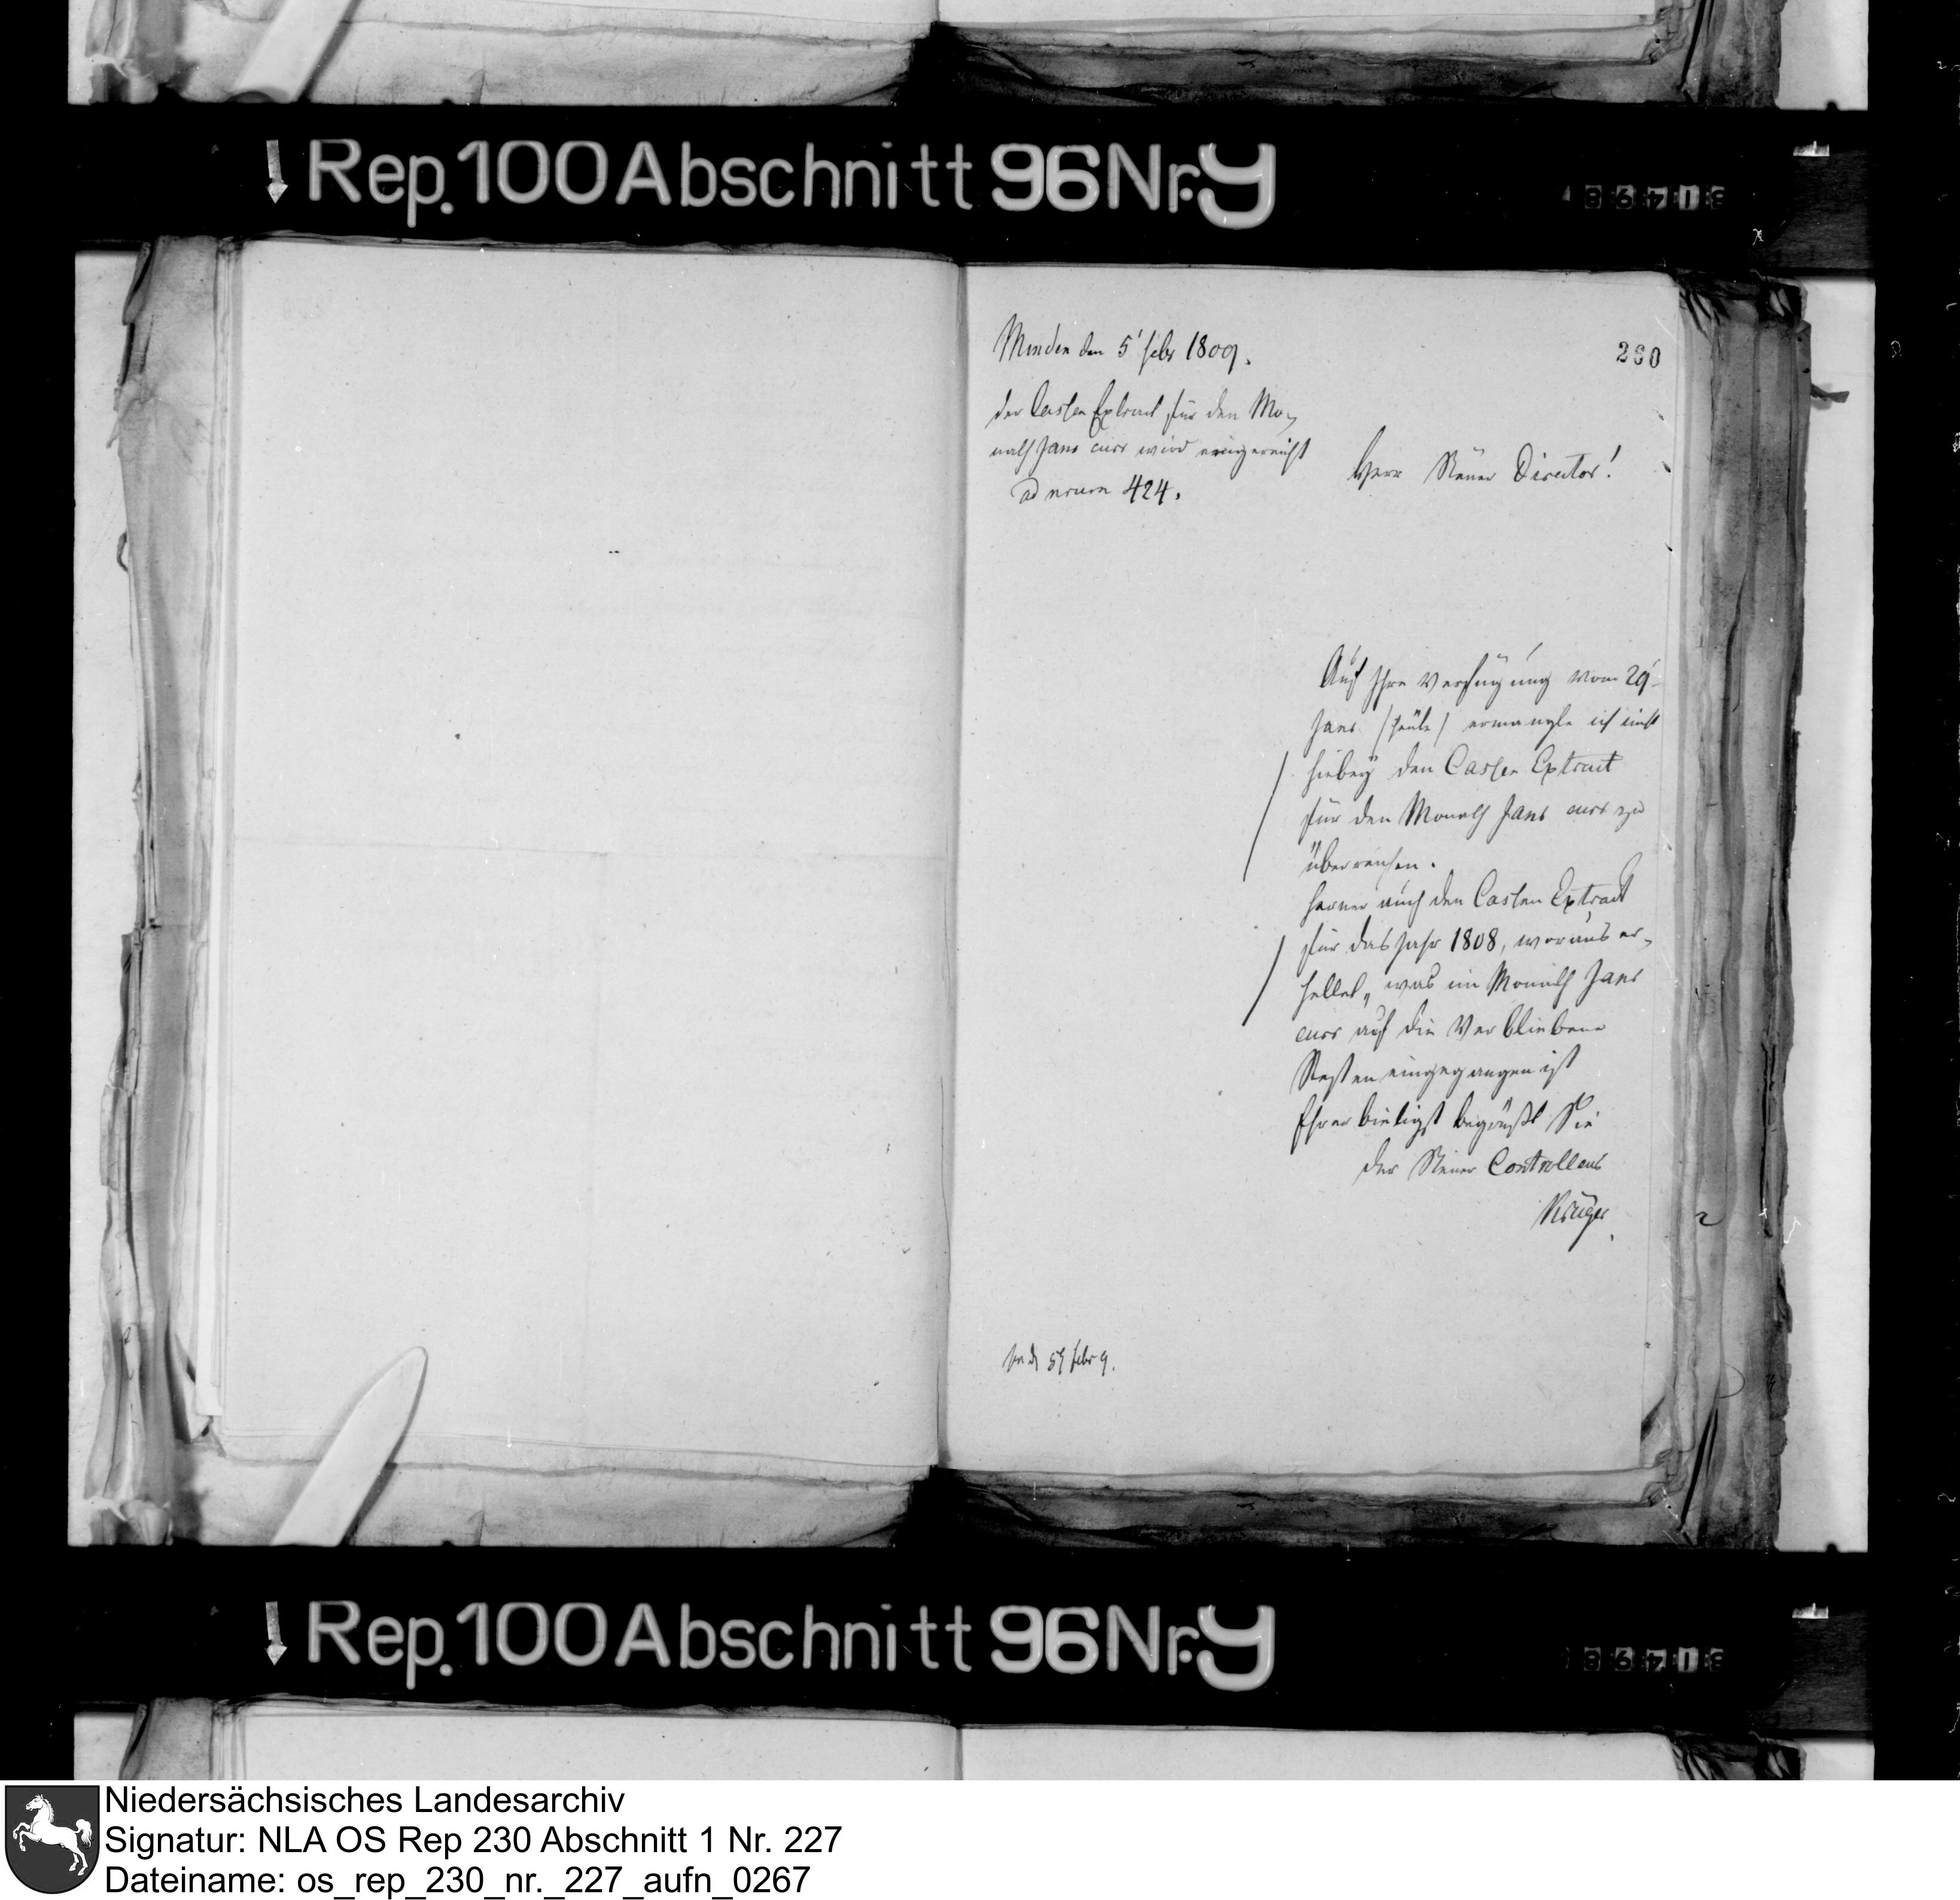 Rep. 100 Abschnitt 96 Nr. 9
Minden den 5' febr 1809.
280
der Cassen Extract für den Mo-
nath Janr curr wird eingereicht
ad num 424.
Herr Steuer Director!
Auf Ihre Verfügung vom 29'
Janr ermangle ich nicht
hiebey den Cassen Extract
für den Monath Janr curr zu
überreichen.
ferner auch den Cassen Extract
für das Jahr 1808, woraus er-
hellet, was im Monath Janr
curr auf die verbliebene
Resten eingegangen ist
Ehrerbietigst begrüßt Sie
der Steuer Controlleur
Krüger
febr 9.
Rep. 100 Abschnitt 96 Nr. 9
Niedersächsisches Landesarchiv
Signatur: NLA OS Rep 230 Abschnitt 1 Nr. 227
Dateiname: os_rep_230_nr._227_aufn_0267